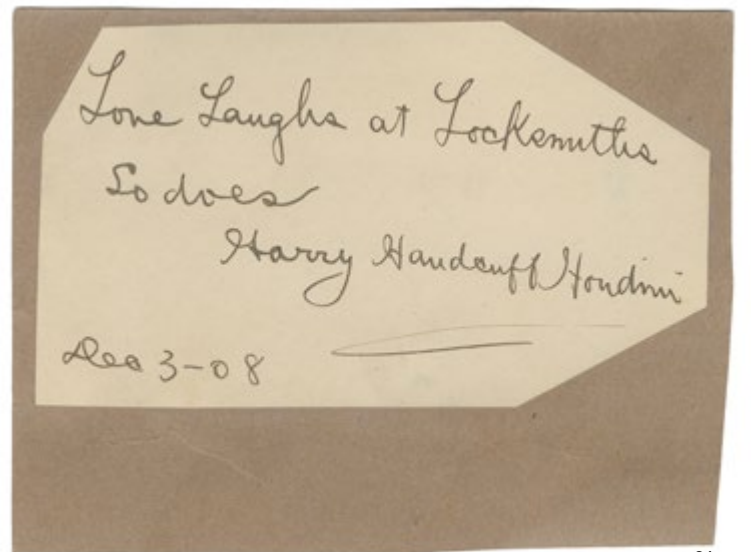 Love Laughs at Locksmiths
So does
Harry Handcuff Houdini
Dec 3-08